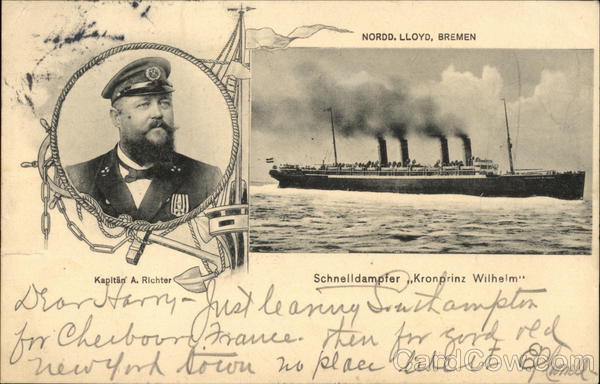 NORDD. LLOYD, BREMEN
Kapitän A. Richter
Schnelldampfer „Kronprinz Wilhelm"
Dear Harry - Just leaving Southampton
for Cherbourg, France. then for good old
New York town no place like it
CardCow.com